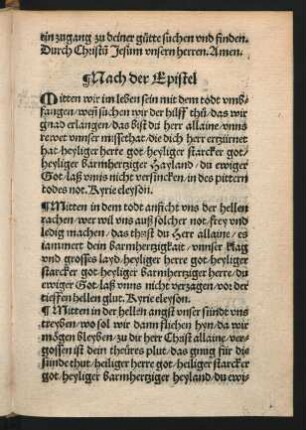 ein zugang zu deiner gütte suchen vnd finden.
Durch Christū Jesum vnsern herren. Amen.
Nach der Epistel
Mitten wir im leben sein mit dem todt vmb-
fangen/ weß suchen wir der hilff thů/ das wir
gnad erlangen/ das bist du herr allaine/ vnns
rewet vnnser missethat/ die dich herr erzürnet
hat/ heyliger herre got/ heyliger starcker got/
heyliger barmhertziger Hayland/ du ewiger
Got/ laß vnns nicht versincken/ in des pittern
todes not. Kyrie eleyson.
¶ Mitten in dem todt anficht vns der hellen
rachen/ wer wil vns auß solcher not/ frey vnd
ledig machen/ das thůst du Herr allaine/ es
iammert dein barmhertzigkait/ vnnser klag
vnd grosses layd/ heyliger herre got/ heyliger
starcker got/ heyliger barmhertziger herre/ du
ewiger Got/ laß vnns nicht verzagen/ vor der
tieffen hellen glut. Kyrie eleyson.
¶ Mitten in der hellen angst vnser sündt vns
treyben/ wo sol wir dann fliehen hyn/ da wir
mögen bleyben/ zu dir herr Christ allaine/ ver-
gossen ist dein theüres plut/ das gnug für die
sünde thut/ heiliger herre got/ heiliger starcker
got/ heyliger barmhertziger heyland/ du ewi-